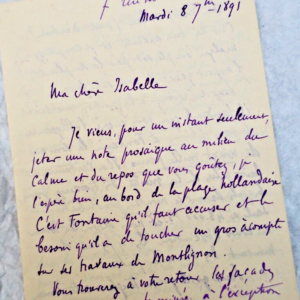 Mardi 8 7bre 1891
Ma chère Isabelle
Je viens, pour un instant seulement,
jeter une note prosaïque au milieu du
Calme et du repos que vous goûtez, je
l'espère bien, au bord de la plage hollandaise
C'est Fontaine qu'il faut accuser et le
besoin qu'il a de toucher un gros acompte
sur ses travaux de Montlignon.
Vous trouverez à votre retour les façades
à l'exception